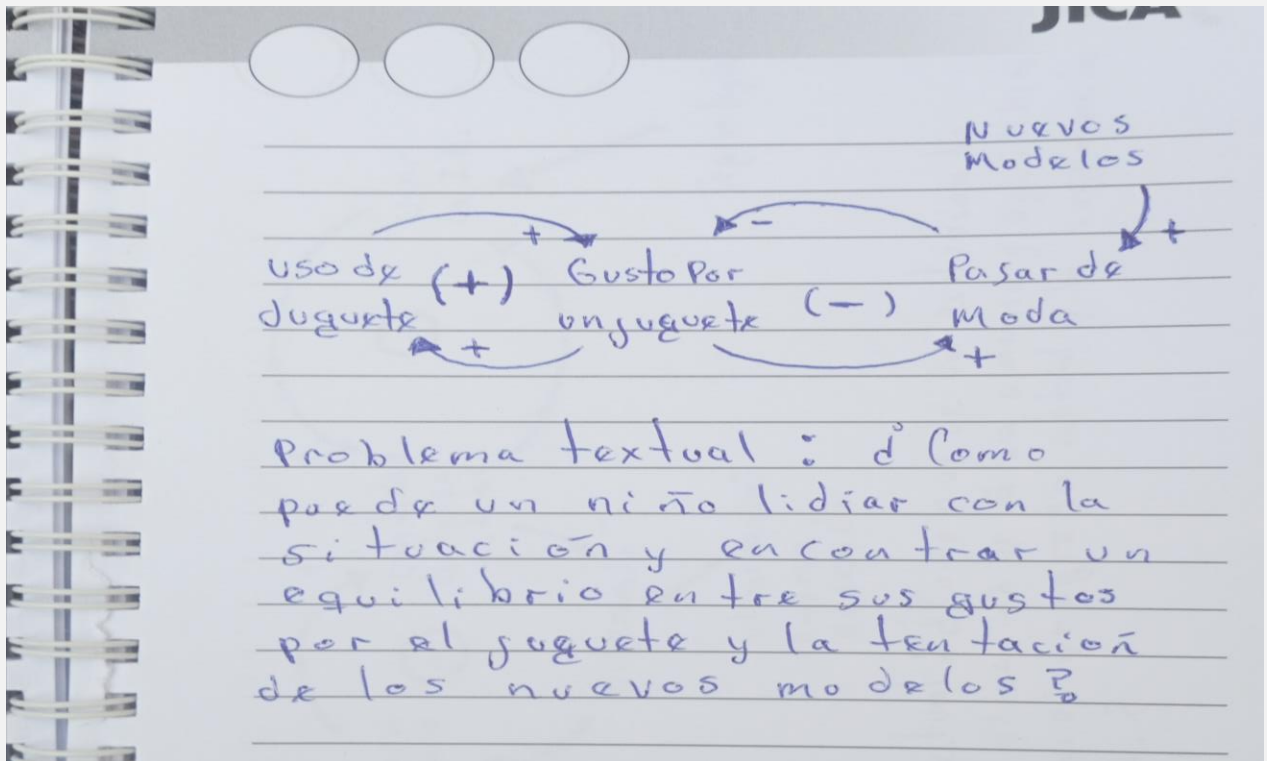 JICA
Nuevos
Modelos
+ - +
uso de (+) Gusto Por Pasar de
Juguete un juguete (-) Moda
+ +
Problema textual : ¿Como
puede un niño lidiar con la
situación y encontrar un
equilibrio entre sus gustos
por el juguete y la tentación
de los nuevos modelos?